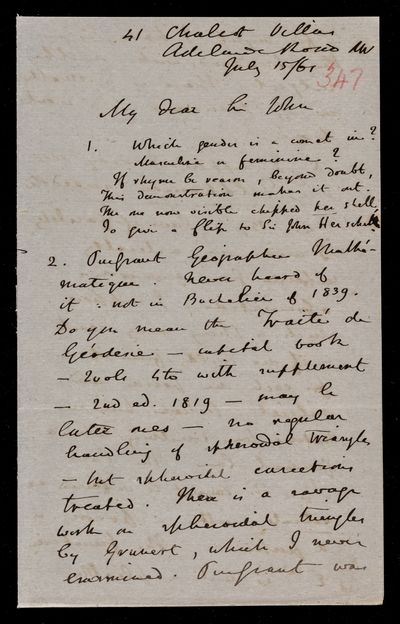 41 Chalcot Villas
Adelaide Road NW
July 15/61
347
My dear Sir John
1. Which gender is a comet in?
Masculine or feminine?
If rhyme be reason, beyond doubt,
This demonstration makes it out.
The one now visible chipped her shell
To give a flip to Sir John Herschell
2. Puissant Géographie Mathé-
matique. Never heard of
it: not in Bachelier of 1839.
Do you mean the Traité de
Géodesie — capital book
— 2 vols 4to with supplement
— 2nd ed. 1819 — may be
later ones — no regular
handling of spheroidal triangles
— but spheroidal corrections
treated. There is a savage
work on spheroidal triangles
by Grunert, which I never
examined. Puissant was